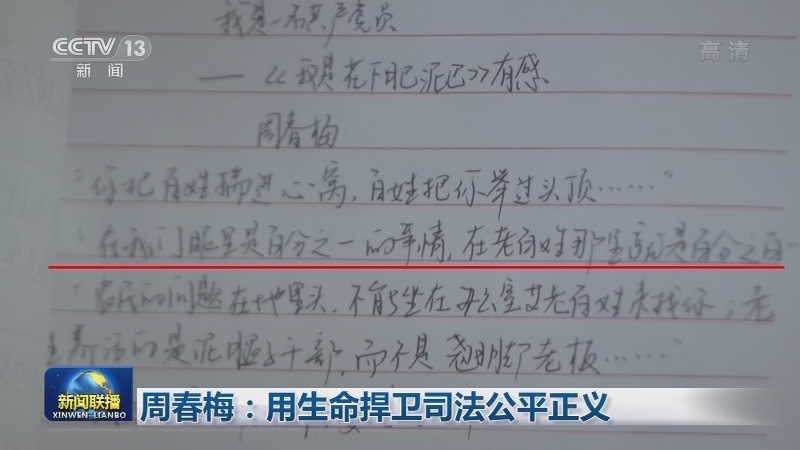 CCTV 13
新闻
高清
我是一名共产党员
——《我是花下肥泥巴》有感
周春梅
“你把百姓揣进心窝，百姓把你举过头顶……”
“在我们眼里是百分之一的事情，在老百姓那里就是百分之百
“农民的问题在地里头，不能坐在办公室等老百姓来找你；老
养活的是泥腿子干部，而不是翘脚老板……”
新闻联播
XINWEN LIANBO
周春梅：用生命捍卫司法公平正义